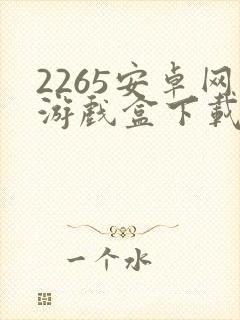 2265安卓网
游戏盒下載
一个水